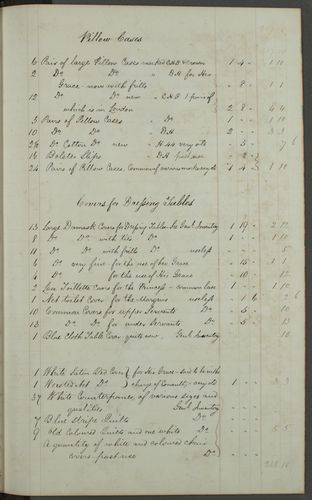 Pillow Cases
6 Pairs of large Pillow Cases marked C.H.B & crown - 1 4 - 1 10
2 Do Do " D.H for Her - 8 - 1 1
Grace - now with frills
12 Do Do new " C.H.B 1 pair of
which is in London 2 8 - 4 4
3 Pairs of Pillow Cases " Do 1 - - 1 10
10 Do Do D.H 2 - - 3
28 Do Cotton Do new " H 44 very old - 5 - 7 6
16 Bolster Slips D.H past use
24 Pairs of Pillow Cases, Common 1 4
Covers for Dressing Tables
13 Large Damask Covers for Dressing Tables See Genl Inventory 1 19 - 2 12
8 Do Do with ties Do 1 - - 1 10
11 Do Do with frills Do useless - - - 5
4 Do very fine for the use of her Grace - 15 - 1 1
4 Do for the use of His Grace - 10 - 12
2 Toillette Covers for the Princess - common lace 1 - - 1 10
1 Net toilet Cover for the useless - 1 6 2 6
10 Common Covers for upper Servants Do - 5 - 10
13 Do Do for under Servants Do - 5 - 13
1 Blue Cloth Table Cover quite new, Genl Inventory - - - 10
1 White Satin Bed Cover for Her Grace
1 Worsted net Do charge of very old 1 - - 3 3
37 White Counterpanes, of various sizes and
qualities Genl Inventory
7 Blue Stripe Quilts Do
9 Old Coloured Quilts and one white Do - - - 5 5
A quantity of white and coloured chair
covers, past use Do